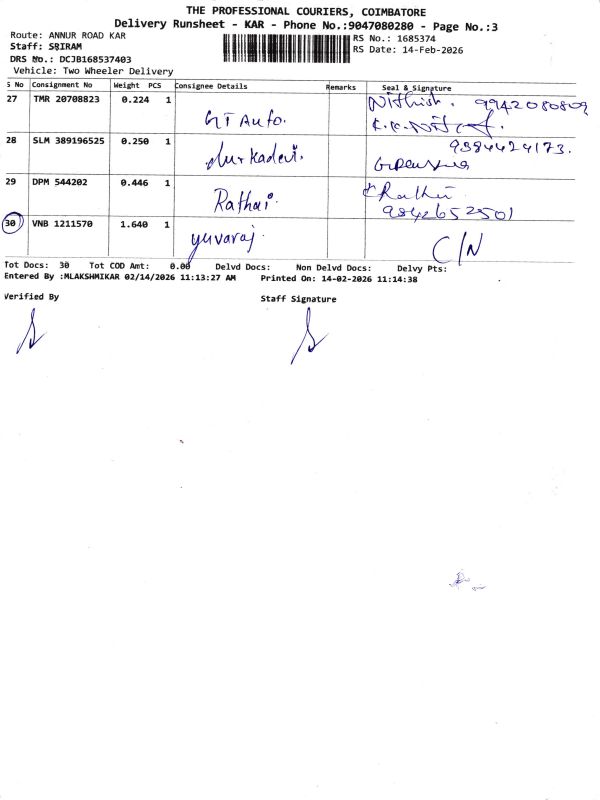 THE PROFESSIONAL COURIERS, COIMBATORE
Delivery Runsheet - KAR - Phone No.:9047080280 - Page No.:3
Route: ANNUR ROAD KAR
RS No.: 1685374
Staff: SRIRAM
RS Date: 14-Feb-2026
DRS No.: DCJB168537403
Vehicle: Two Wheeler Delivery
S No Consignment No Weight PCS Consignee Details Remarks Seal & Signature
27 TMR 20708823 0.224 1 GT Auto. Nithish. 9942080809
28 SLM 389196525 0.250 1 9384424173.
29 DPM 544202 0.446 1 Rathai Rathi
9842652501
30 VNB 1211570 1.640 1 yuvaraj C/N
Tot Docs: 30 Tot COD Amt: 0.00 Delvd Docs: Non Delvd Docs: Delvy Pts:
Entered By :MLAKSHMIKAR 02/14/2026 11:13:27 AM Printed On: 14-02-2026 11:14:38
Verified By Staff Signature